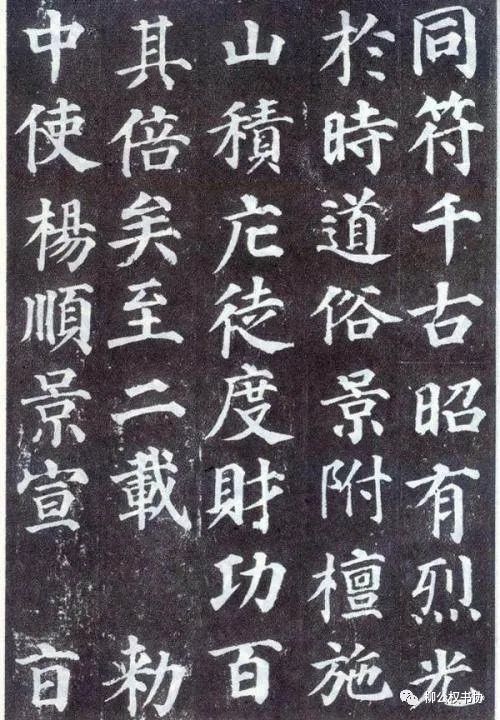 同符千古昭有烈光
於時道俗景附檀施
山積庀徒度財功百
其倍矣至二載 勅
中使楊順景宣 旨
柳公权书协